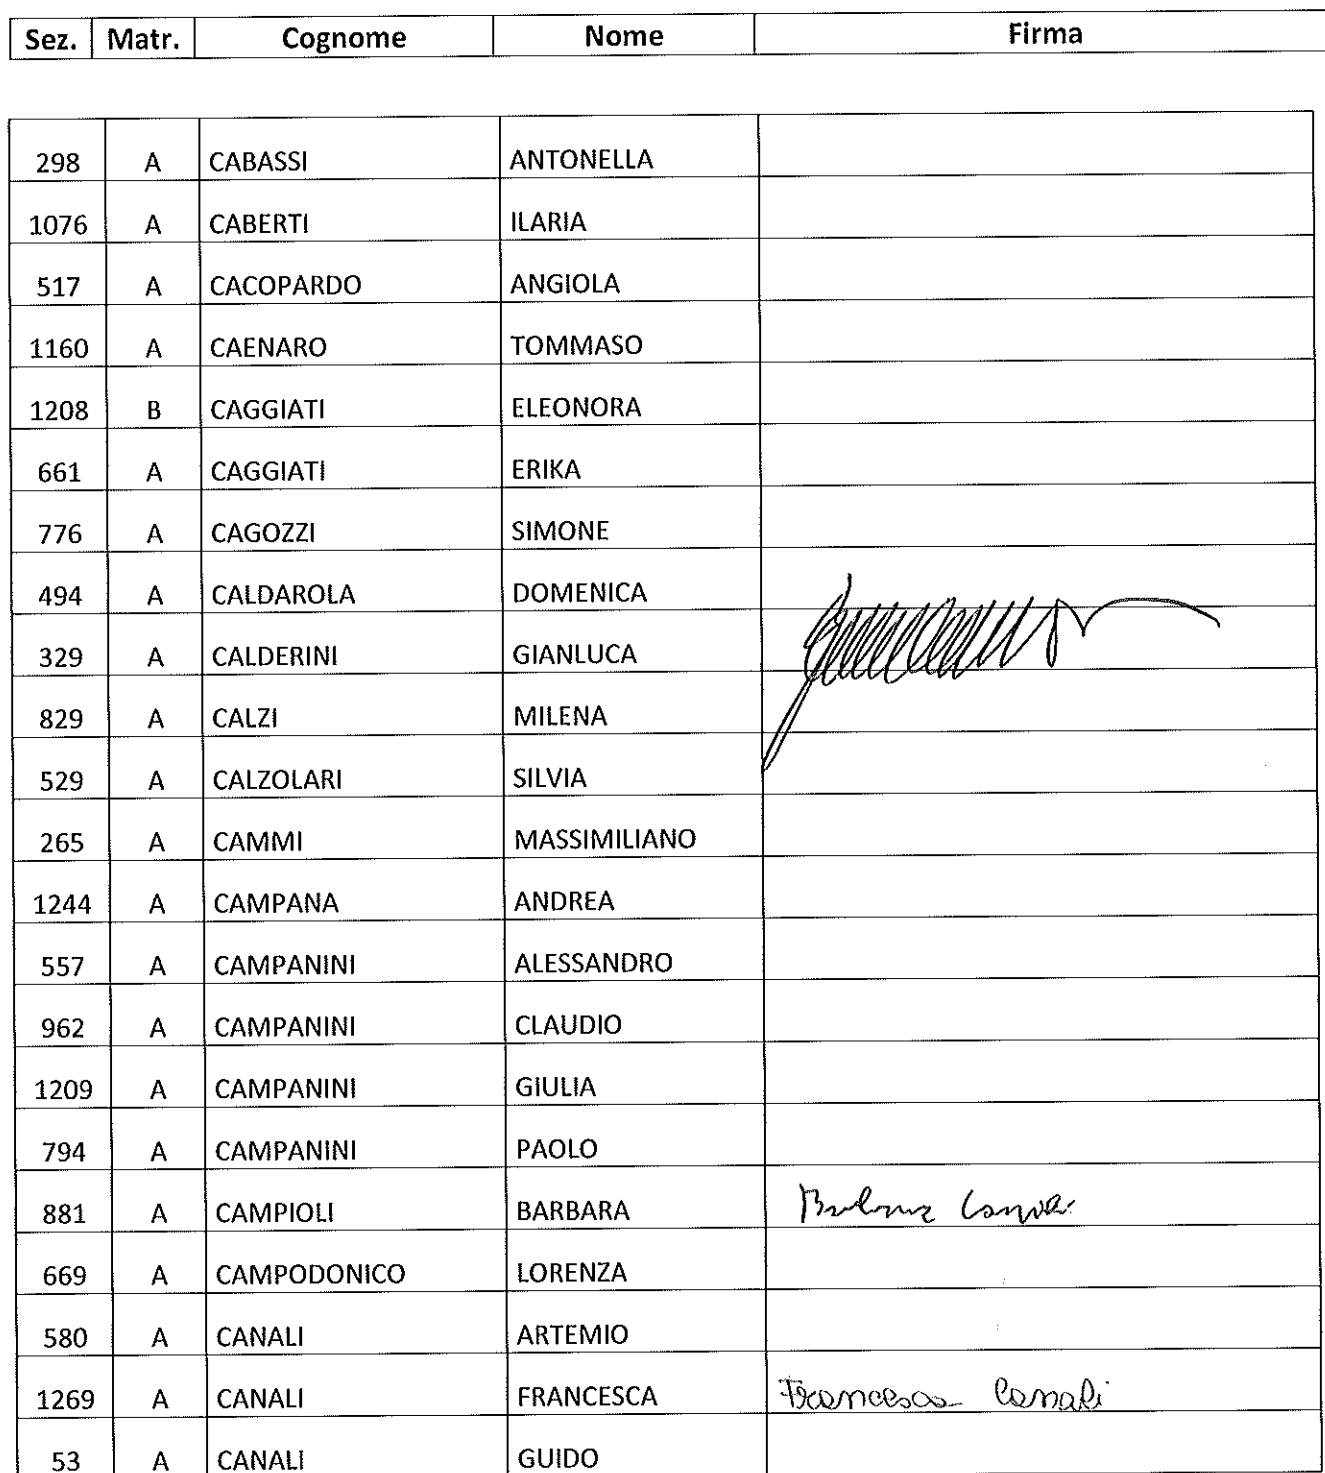 Sez. Matr. Cognome Nome Firma
298 A CABASSI ANTONELLA
1076 A CABERTI ILARIA
517 A CACOPARDO ANGIOLA
1160 A CAENARO TOMMASO
1208 B CAGGIATI ELEONORA
661 A CAGGIATI ERIKA
776 A CAGOZZI SIMONE
494 A CALDAROLA DOMENICA
329 A CALDERINI GIANLUCA
829 A CALZI MILENA
529 A CALZOLARI SILVIA
265 A CAMMI MASSIMILIANO
1244 A CAMPANA ANDREA
557 A CAMPANINI ALESSANDRO
962 A CAMPANINI CLAUDIO
1209 A CAMPANINI GIULIA
794 A CAMPANINI PAOLO
881 A CAMPIOLI BARBARA
669 A CAMPODONICO LORENZA
580 A CANALI ARTEMIO
1269 A CANALI FRANCESCA Francesca Canali
53 A CANALI GUIDO